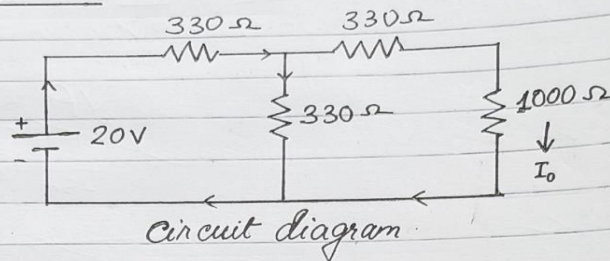 330Ω 330Ω
330Ω 1000Ω
+ 20V
-
I₀
Circuit diagram.